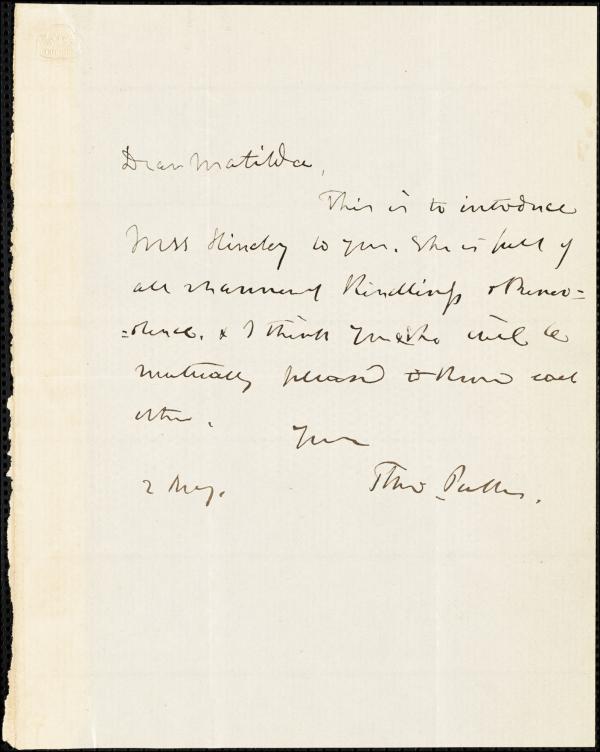 Dear Matilda,
This is to introduce
Miss to you. She is full of
all manner of Kindliness & Benev=
=olence, & I think you & she will be
mutually pleased to Know each
other.
Yours
2 May. Theo. Parker.